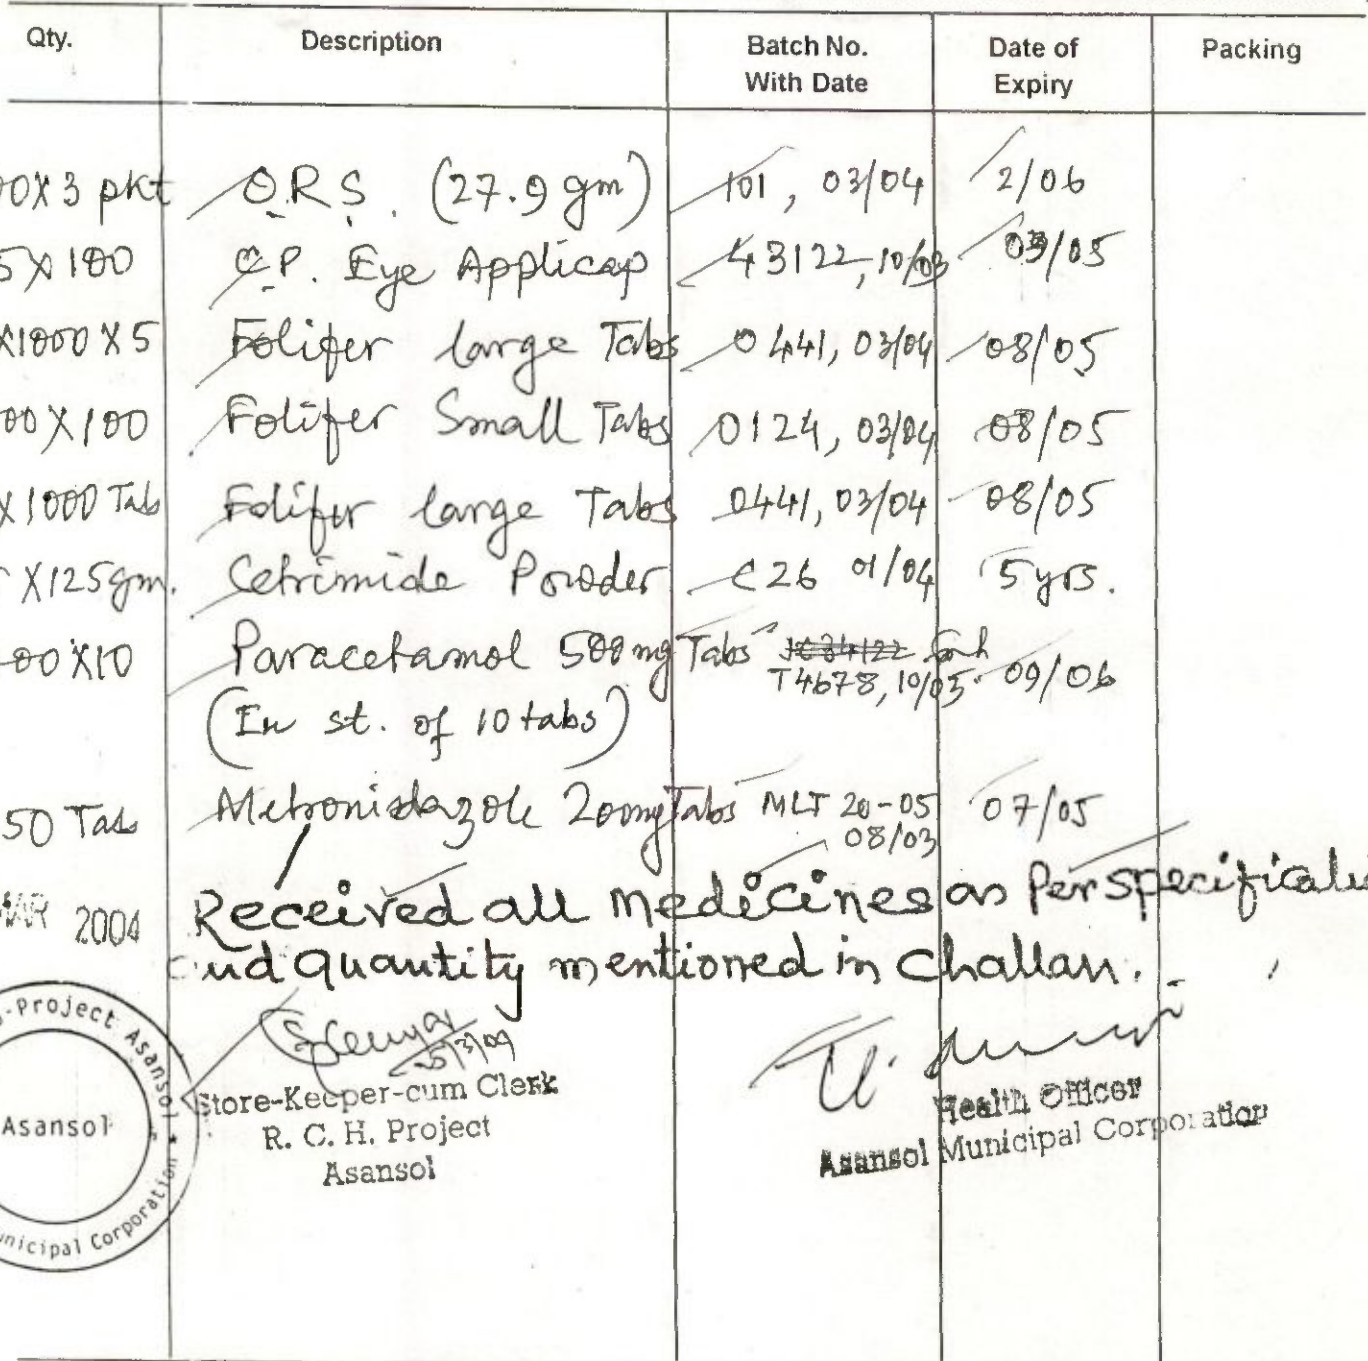 Qty. Description Batch No. With Date Date of Expiry Packing
00X3 pkt O.R.S. (27.9 gm) 101, 03/04 2/06
5X100 C.P. Eye Applicap 43122, 10/03 03/05
X1000X5 Folifer large Tabs 0441, 03/04 08/05
00X100 Folifer Small Tabs 0124, 03/04 08/05
X1000 Tab Folifer large Tabs 0441, 03/04 08/05
X125gm. Cetrimide Powder C26 01/04 5 yrs.
00X10 Paracetamol 500mg Tabs
T4678, 10/03 09/06
(In st. of 10 tabs)
50 Tab Metronidazole 200mg Tabs MLT 20-05 07/05
08/03
MAR 2004 Received all medicines as Per specificati
and quantity mentioned in challan.
-Project Asansol * unicipal Corporation
Asansol
5/3/04
Store-Keeper-cum Clerk
R. C. H. Project
Asansol
Health Officer
Asansol Municipal Corporation